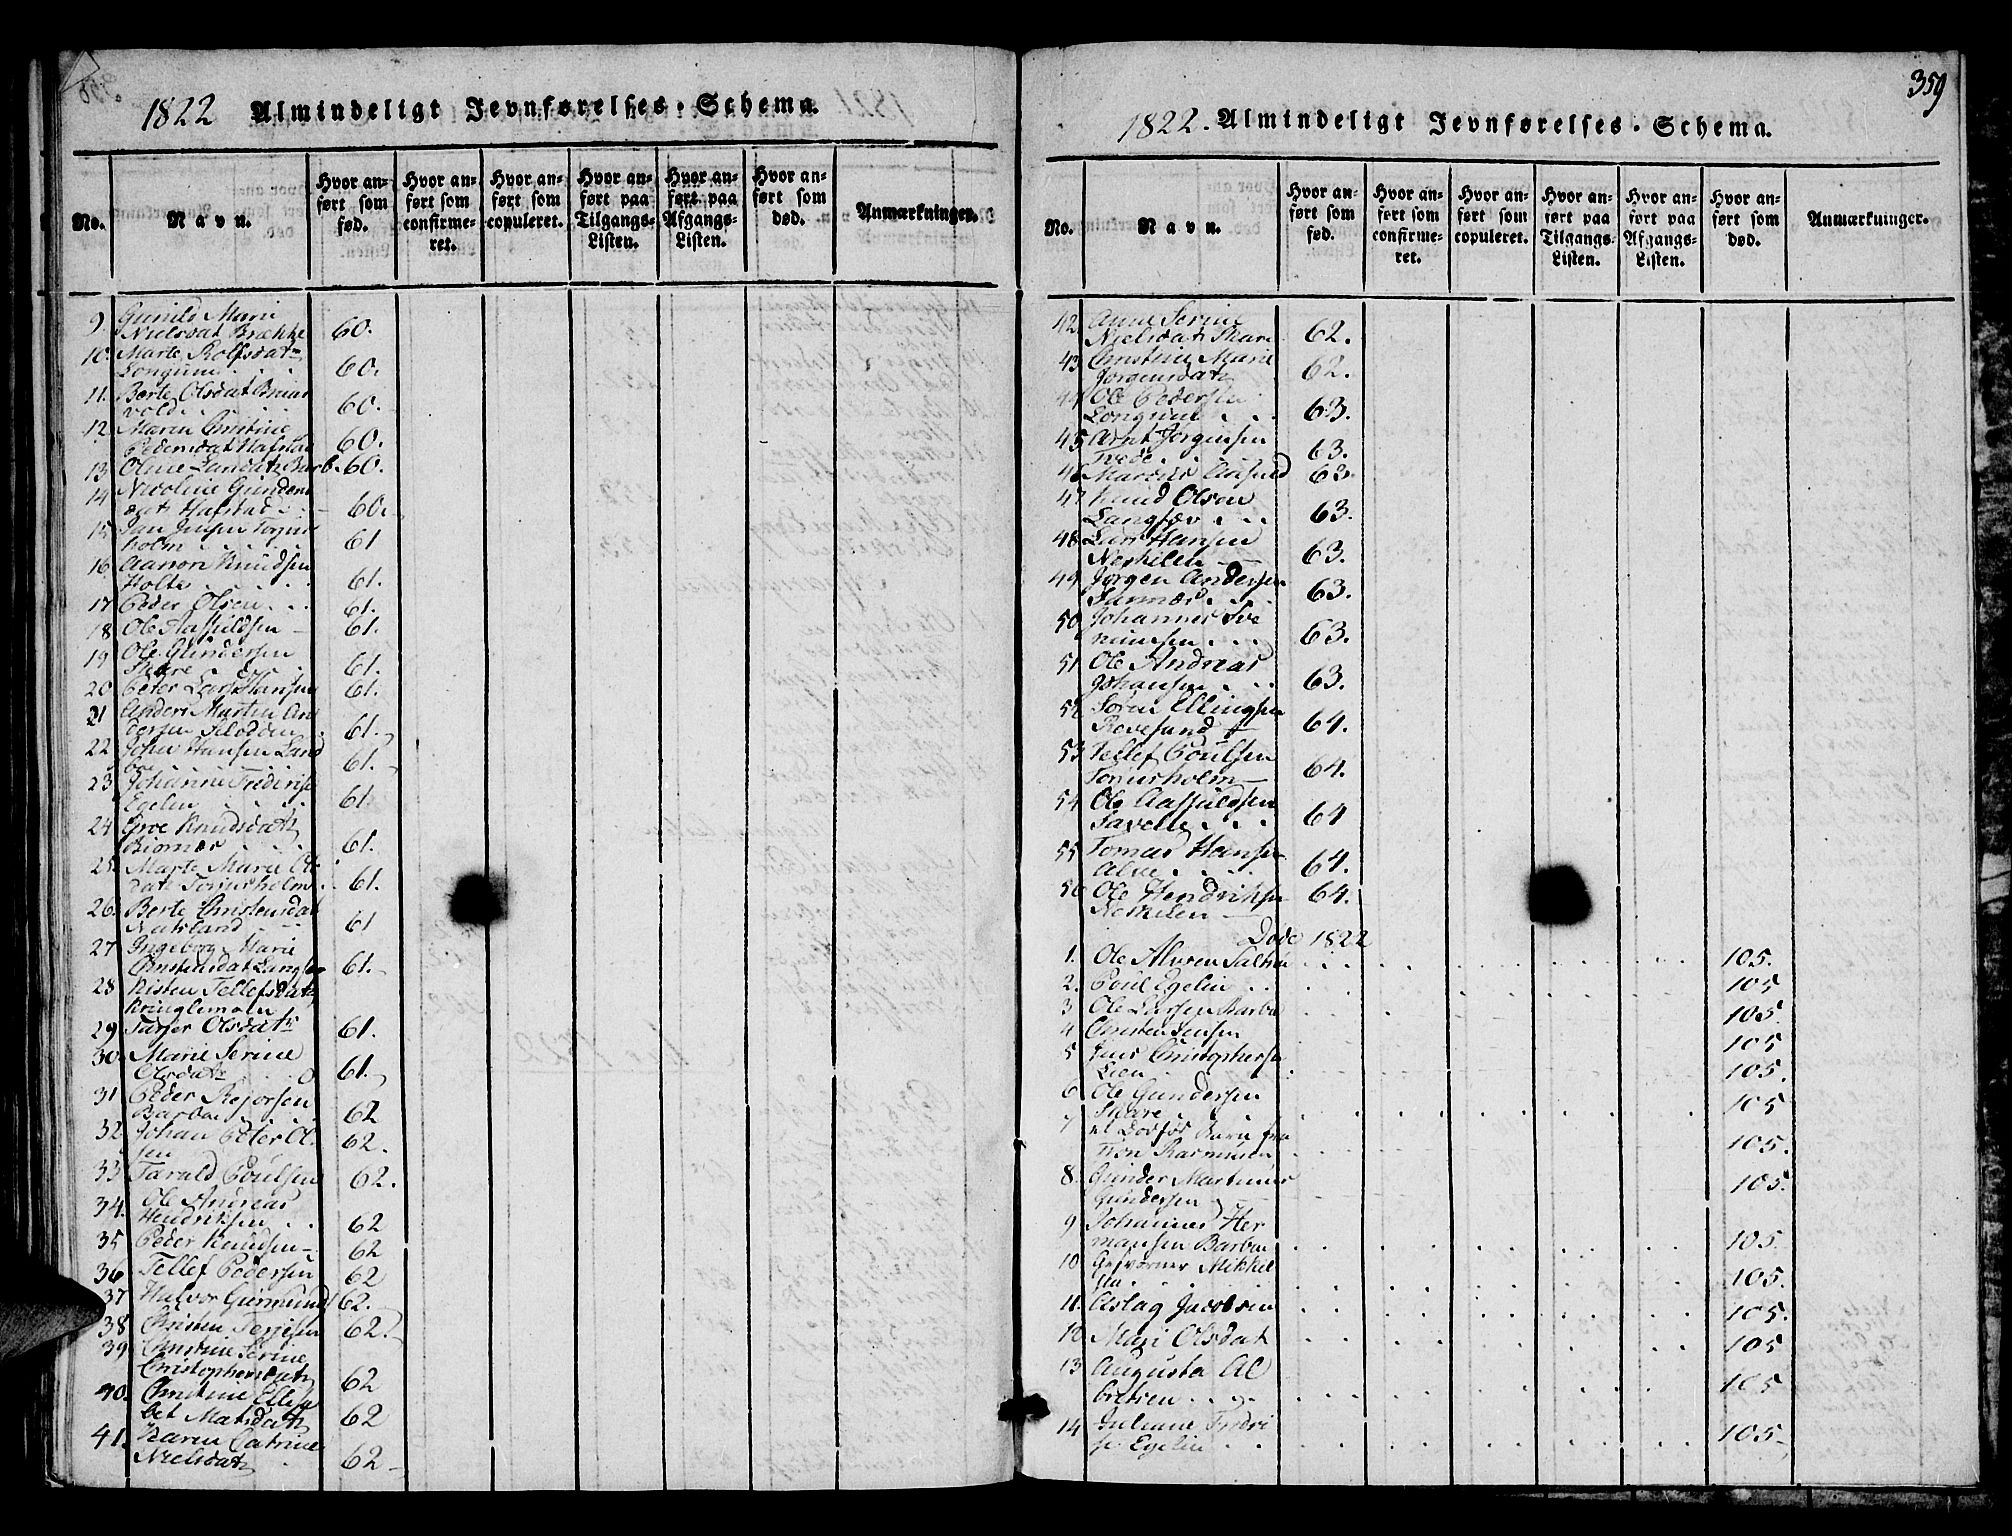 359
1822 Almindeligt Jevnførelses-Schema.
No.
Navn.
Hvor an-
ført som
fød.
Hvor an-
ført som
confirme-
ret.
Hvor an-
ført som
copuleret.
Hvor an-
ført paa
Tilgangs-
Listen.
Hvor an-
ført paa
Afgangs-
Listen.
Hvor an-
ført som
død.
Anmærkninger.
9. Gunild Marie
Nielsdat Brække 60.
10. Marte Rolfsdatr
Longum . . . 60.
11. Berte Olsdat
vold . . . 60.
12. Maren Christine
Pedersdat Hafstad 60.
13. Oline Larsdatr Barb. 60.
14 Nicoline Gunders
datr Hafstad . . 60.
15. Jan Jensen Torjus
holm . . . 61
16. Aanon Knudsen
Holte . . . 61.
17 Peder Olsen . . . 61.
18 Ole Aasuldsen 61.
19 Ole Gundersen
Skare . . . 61.
20 Peter Lars Hansen 61.
21 Anders Martin An
dersen Flødden . 61.
22 John Hansen Land
boe . . . 61.
23 Johanne Frederikse
Egelin . . . 61
24 Groe Knudsdatr
Biornes . . . 61.
25. Marte Marie Ols
datr Torjusholm . 61.
26. Berte Christensdat
Natvland . . . 61
27 Ingeborg Marie
Christensdat Langbo 61.
28 Kisten Tellefsdatr
Kringlemoen
29 Tarjer Olsdatr 61.
30. Marie Serine
Olsdatr . . . 61.
31 Peder Rejorsen
Barboe . . . 62
32. Johan Peter Ol
sen 62.
33 Tarald Poulsen 62.
34. Ole Andreas
Hendriksen . . 62
35 Peder Knudsen 62
36 Tellef Pedersen 62
37 Halvor Giermunds 62.
38 Christen Terjesen 62.
39. Christine Serine
Christophersdatr 62
40. Christine Elisa
bet Matsdatr 62
41. Karen Catrine
Nielsdatr 62
1822. Almindeligt Jevnførelses-Schema.
No.
Navn.
Hvor an-
ført som
fød.
Hvor an-
ført som
confirme-
ret.
Hvor an-
ført som
copuleret.
Hvor an-
ført paa
Tilgangs-
Listen.
Hvor an-
ført paa
Afgangs-
Listen.
Hvor an-
ført som
død.
Anmærkninger.
42. Anne Serine
Nielsdatr Skare 62.
43 Christine Marie
Jorgensdatr 62.
44 Ole Pedersen
Longum . . . 63.
45 Arnt Jorgensen
Tvede . . . 63.
46 63.
47 Knud Olsen
Langsæv . . . 63.
48. Lars Hansen
Neskilen 63.
49. Jørgen Andersen
Sannæs . . 63.
50. Johannes Sve
nunsen . . . 63.
51 Ole Andreas
Johansen . . . 63.
52 Søren Ellingsen
Revesand 64.
53 Tellef Poulsen
Torjusholm 64.
54 Ole Aasuldsen
Savelie . . . 64
55 Tomas Hansen
Alve . . . 64.
56 Ole Hendriksen 64.
Neskilen
Døde 1822
1. Ole Alvsen Saltrø . . . 105.
2. Poul Egelin . . 105
3 Ole Larsen Barbu 105
4 Christen Jensen 105
5 Jens Christophersen
Lien . 105.
6 Ole Gundersen
Skare . . 105
7 et Dødfød Barn fra
Tron Rasmusen 105.
8. Gunder Martinus
Gundersen 105.
9 Johannes Her
mansen Barboe 105.
10 Mikkel
sen 105.
11. Aslag Jacobsen 105.
12 Mari Olsdat 105
13 Augusta Al
bretsen . . . 105
14 Juliane Fredri
se Egelin . . 105